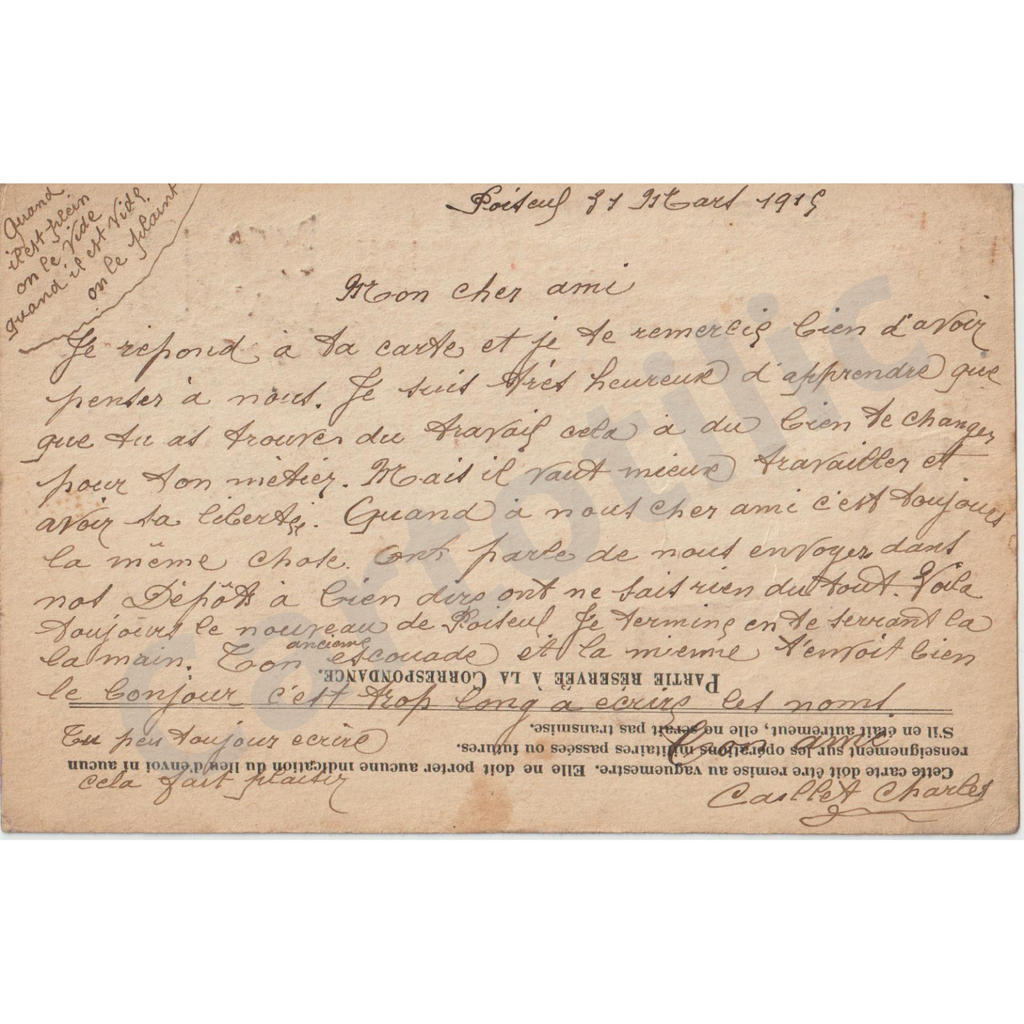 Quand
il est plein
on le Vide
quand il est Vide
on le plaint
Poiseul 31 Mars 1915
Mon cher ami
Je répond à ta carte et je te remercie bien d'avoir
penser à nous. Je suis très heureux d'apprendre que
que tu as trouver du travail cela à du bien te changer
pour ton métier. Mais il vaut mieux travailler et
avoir sa liberté. Quand à nous cher ami c'est toujours
la même chose. ont parle de nous envoyer dans
nos Dépôts à bien dire ont ne sais rien du tout. Voila
toujours le nouveau de Poiseul Je termine en te serrant la
la main. Ton ancienne escouade et la mienne t'envoit bien
le bonjour c'est trop long a ecrire les noms.
Ton ami
Tu peu toujour ecrire
cela fait plaisir
Caillet Charles
PARTIE RÉSERVÉE À LA CORRESPONDANCE.
Cette carte doit être remise au vaguemestre. Elle ne doit porter aucune indication du lieu d'envoi ni aucun
renseignement sur les opérations militaires passées ou futures.
S'il en était autrement, elle ne serait pas transmise.
cartolic